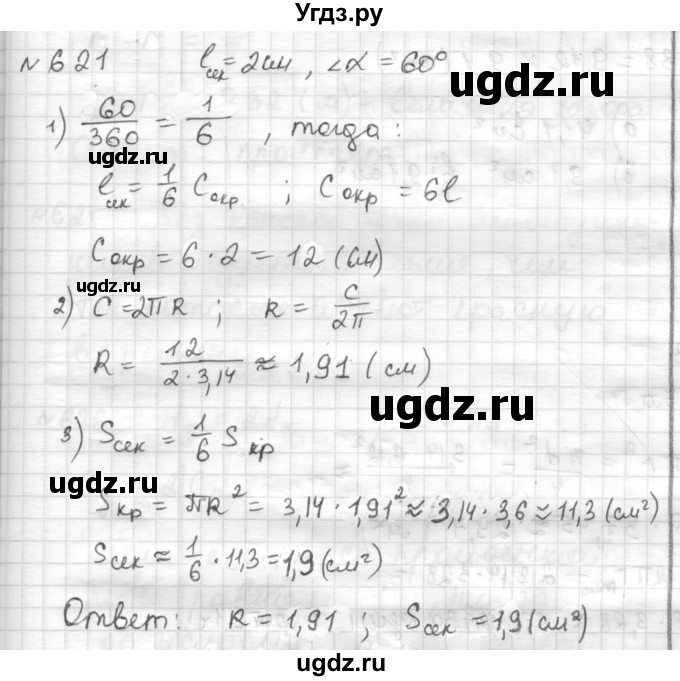 Угдз.ру
№621 ℓсек = 2см, ∠α = 60°
ugdz.ru
1) 60/360 = 1/6, тогда:
ugdz.ru
ℓсек = 1/6 Cокр. ; Cокр = 6ℓ
ugdz.ru
Cокр = 6 · 2 = 12 (см)
ugdz.ru
2) C = 2πR ; R = C/2π
R = 12/2·3,14 ≈ 1,91 (см)
ugdz.ru
3) Sсек = 1/6 Sкр
ugdz.ru
Sкр = πR² = 3,14 · 1,91² ≈ 3,14 · 3,6 ≈ 11,3 (см²)
ugdz.ru
Sсек ≈ 1/6 · 11,3 = 1,9 (см²)
ugdz.ru
Ответ: R = 1,91 ; Sсек = 1,9 (см²)
ugdz.ru